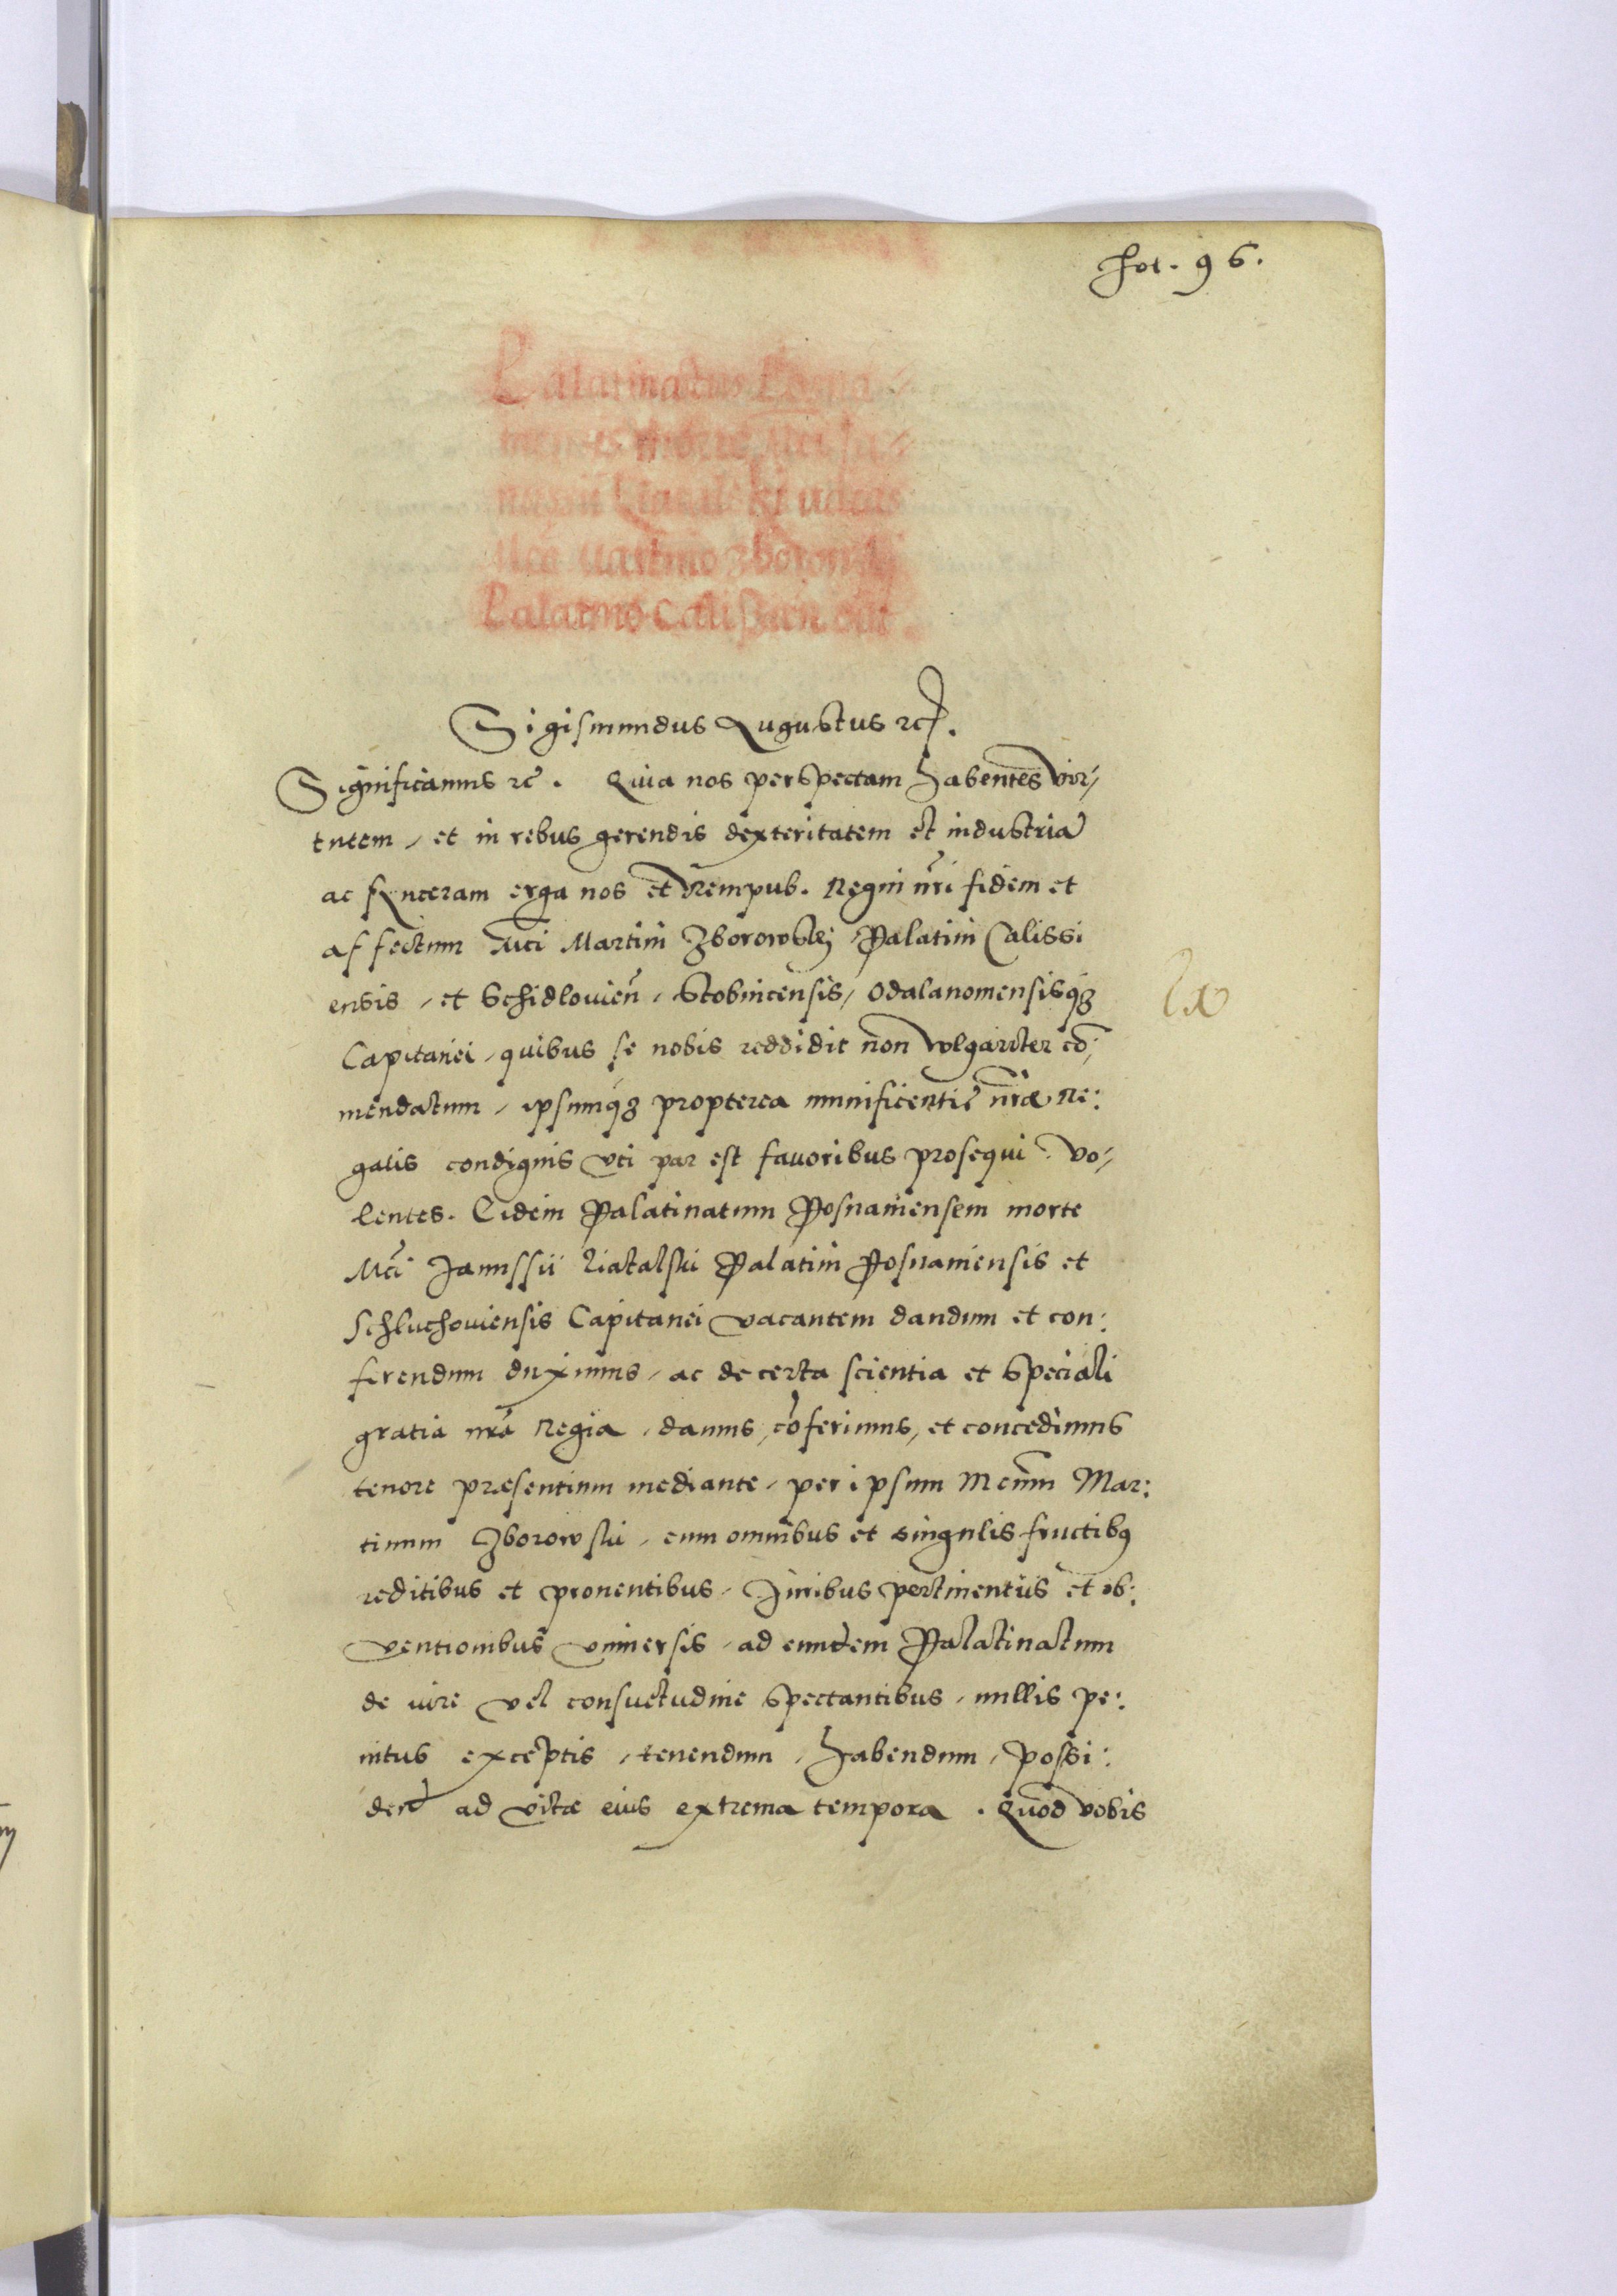 fol. 96.
Palatinatus Posna-
niensis morte Mci Ja-
nussii Liatalski vacas
Mco Martino Zborowski
Palatino Calissien datur
Sigismundus Augustus etc.
Significamus etc. Quia nos perspectam habentes vir-
tutem, et in rebus gerendis dexteritatem et industriã
ac synceram erga nos et Rempub. Regni nr̃i fidem et
affectum Mci Martini Zborowskj Palatini Calissi
ensis, et Schidlovien̄, Stobnicensis, Odalanomensisq3
Capitanei, quibus se nobis reddidit non wlgariter cõ:
mendatum, ipsumq3 propterea munificentię nr̃æ Re:
galis condignis uti par est favoribus prosequi vo-
lentes. Eidem Palatinatum Posnaniensem morte
Mci Janussii Liatalski Palatini Posnaniensis et
Schluchoviensis Capitanei vacantem dandum et con:
ferendum duximus, ac de certa scientia et speciali
gratia nr̃a Regia, damus, cõferimus, et concedimus
tenore præsentium mediante, per ipsum Mcum Mar:
tinum Zborowski, cum omnibus et singulis fructibus
reditibus et proventibus, Juribus pertinentiis et ob:
ventionibus universis, ad eundem Palatinatum
de iure vel consuetudine spectantibus, nullis pe:
nitus exceptis, tenendum, habendum, possi:
dend ad vitæ eius extrema tempora. Quod vobis